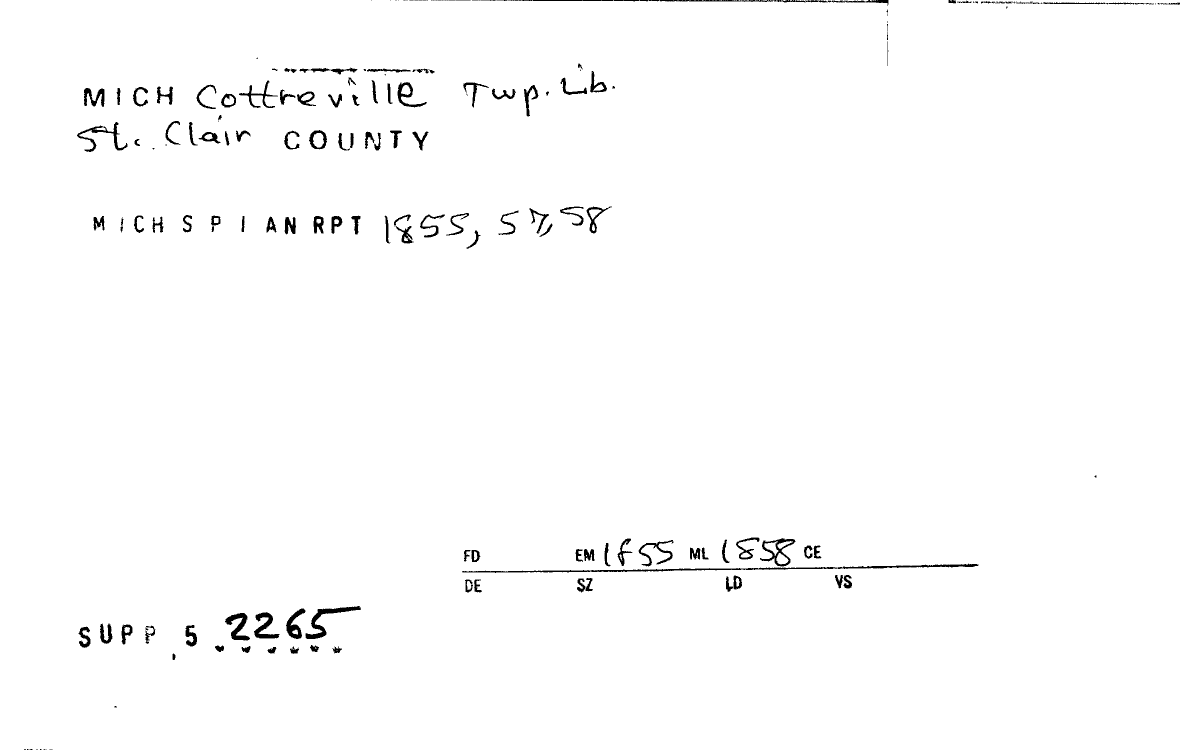 MICH Cottreville Twp. Lib.
St. Clair COUNTY
MICH S P I AN RPT 1855, 57, 58
FD EM 1855 ML 1858 CE
DE SZ LD VS
SUPP 5 2265